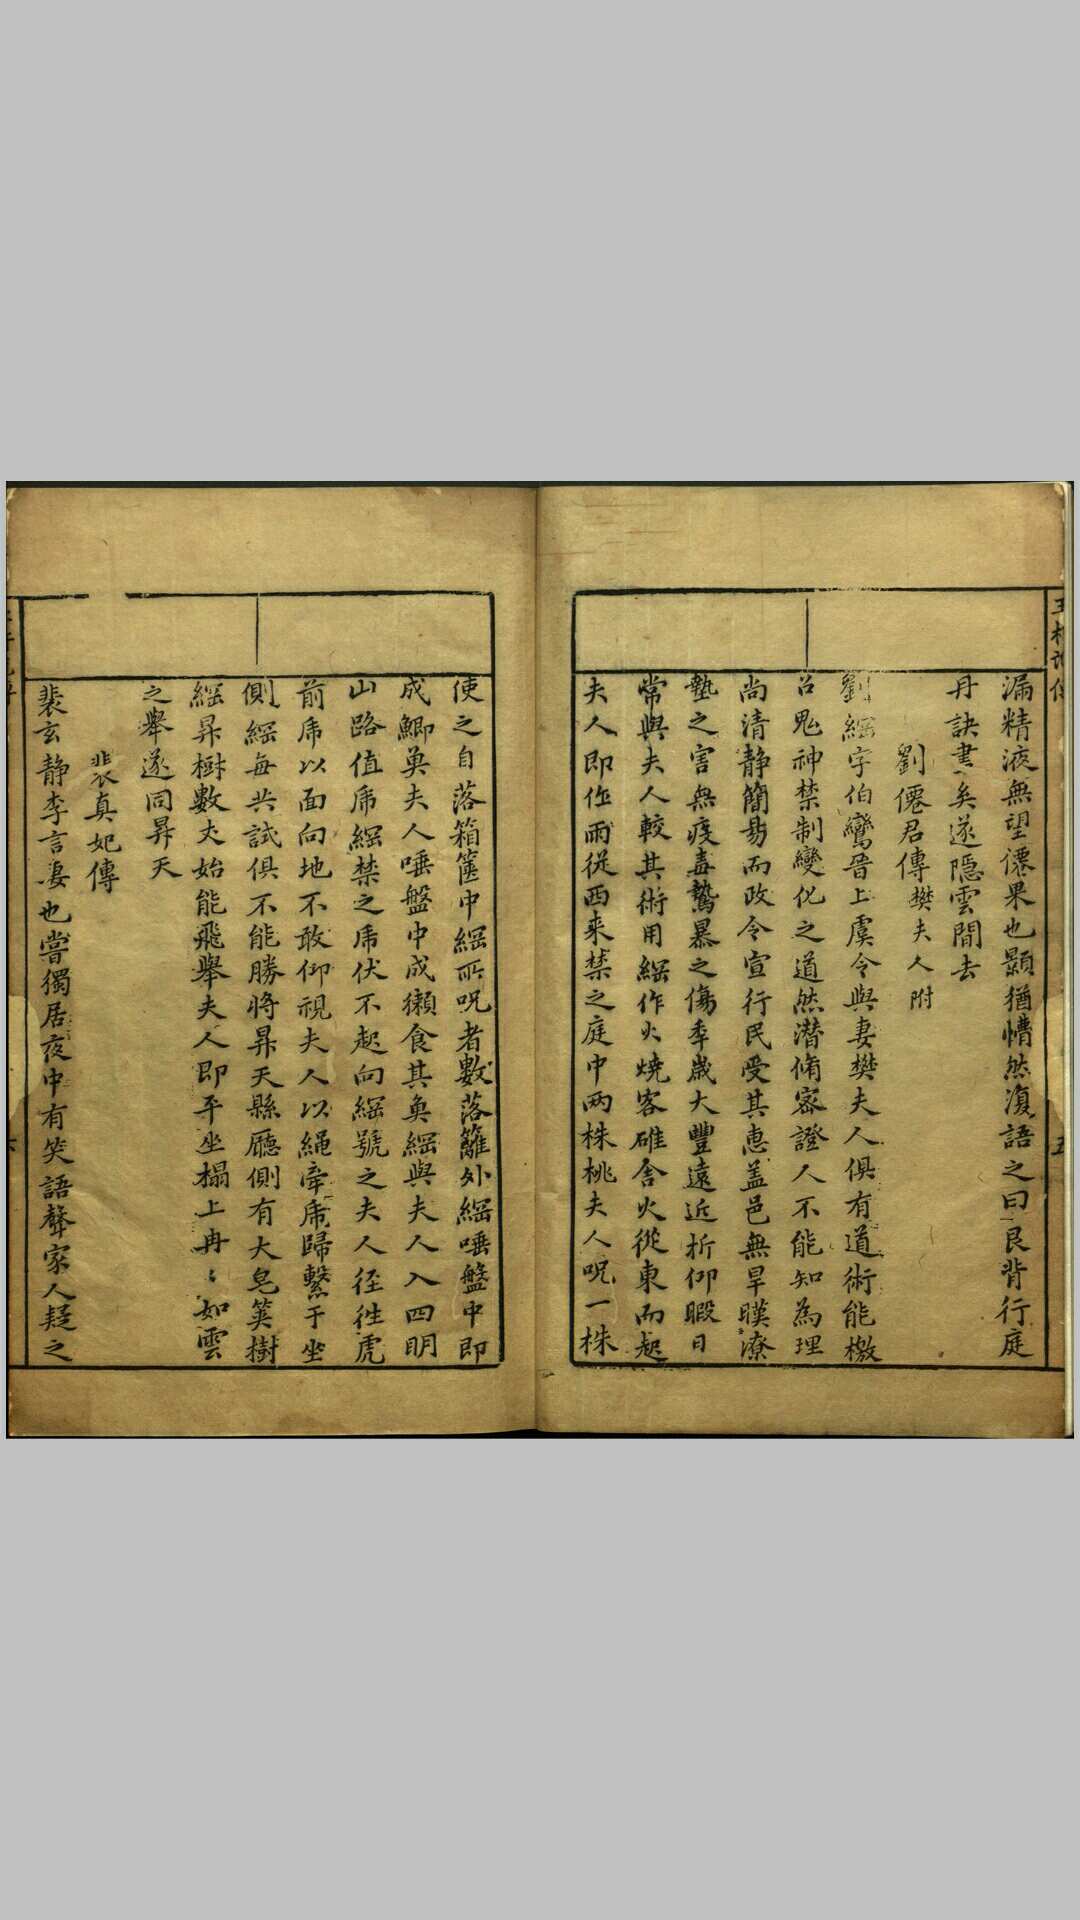 漏精液無望僊果也顥猶懵然復語之曰艮背行庭
丹訣書矣遂隱雲間去
劉僊君傳樊夫人附
劉綱字伯鸞晉上虞令與妻樊夫人俱有道術能檄
召鬼神禁制變化之道然潜脩宻證人不能知為理
尚清静簡昜而政令宣行民受其惠盖邑無旱暵潦
墊之害無疫毒鷙暴之傷季歲大豐遠近析仰暇日
常與夫人較其術用綱作火燒客碓舎火從東而起
夫人即作雨從西来禁之庭中两株桃夫人呪一株
使之自落箱篋中綱所呪者數落籬外綱唾盤中即
成鯽奠夫人唾盤中成獺食其奠綱與夫人入四明
山路值乕綱禁之乕伏不起向綱號之夫人径徃虎
前乕以面向地不敢仰視夫人以縄牽乕歸繫于坐
側綱每共試俱不能勝将昇天縣廳側有大皂莢樹
綱昇樹數丈始能飛舉夫人即平坐榻上冉〻如雲
之舉遂同昇天
裴真妃傳
裴玄静李言妻也嘗獨居夜中有笑語聲家人疑之